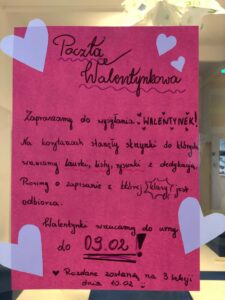 Poczta
Walentynkowa
Zapraszamy do wysyłania "WALENTYNEK!
Na korytarzach staną skrzynki do których
wrzucamy laurki, listy, rysunki z dedykacją.
Prosimy o zapisanie z której klasy jest
odbiorca.
Walentynki wrzucamy do urny
do 09.02!
Rozdane zostaną na 3 lekcji
dnia 10.02